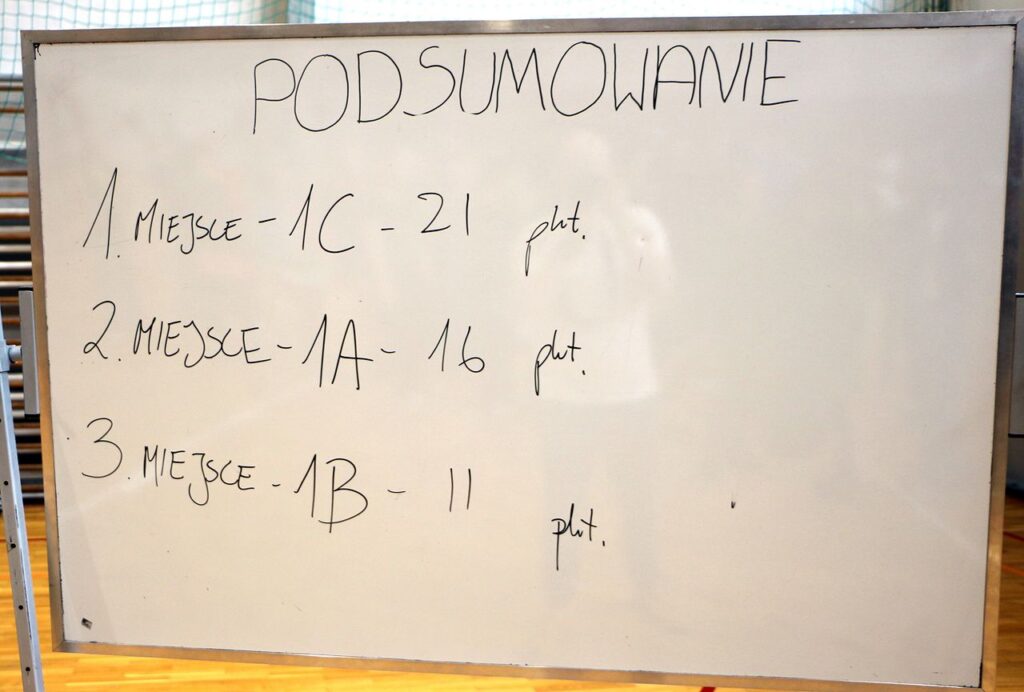 PODSUMOWANIE
1. MIEJSCE - 1C - 21 pkt.
2. MIEJSCE - 1A - 16 pkt.
3. MIEJSCE - 1B - 11 pkt.